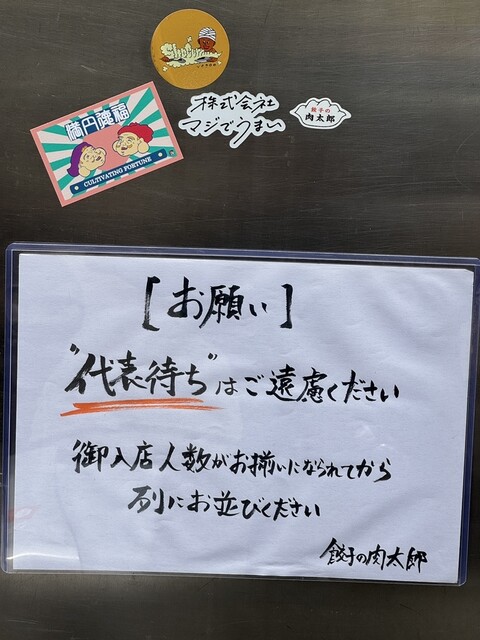 株式会社
マジでうまい
餃子の
肉太郎
満円德福
CULTIVATING FORTUNE
[お願い]
"代表待ち"はご遠慮ください
御入店人数がお揃いになられてから
列にお並びください
餃子の肉太郎